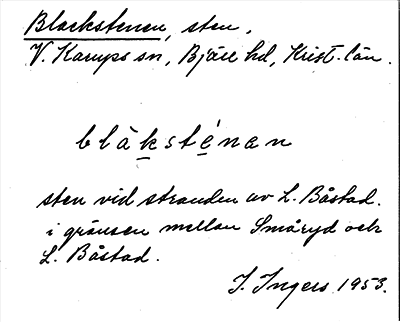 Blackstenen, sten,
V. Karups sn, Bjäre hd, Krist. län.
blàksténan
sten vid stranden av L. Båstad.
i gränsen mellan Småryd och
L. Båstad.
I. Ingers 1953.